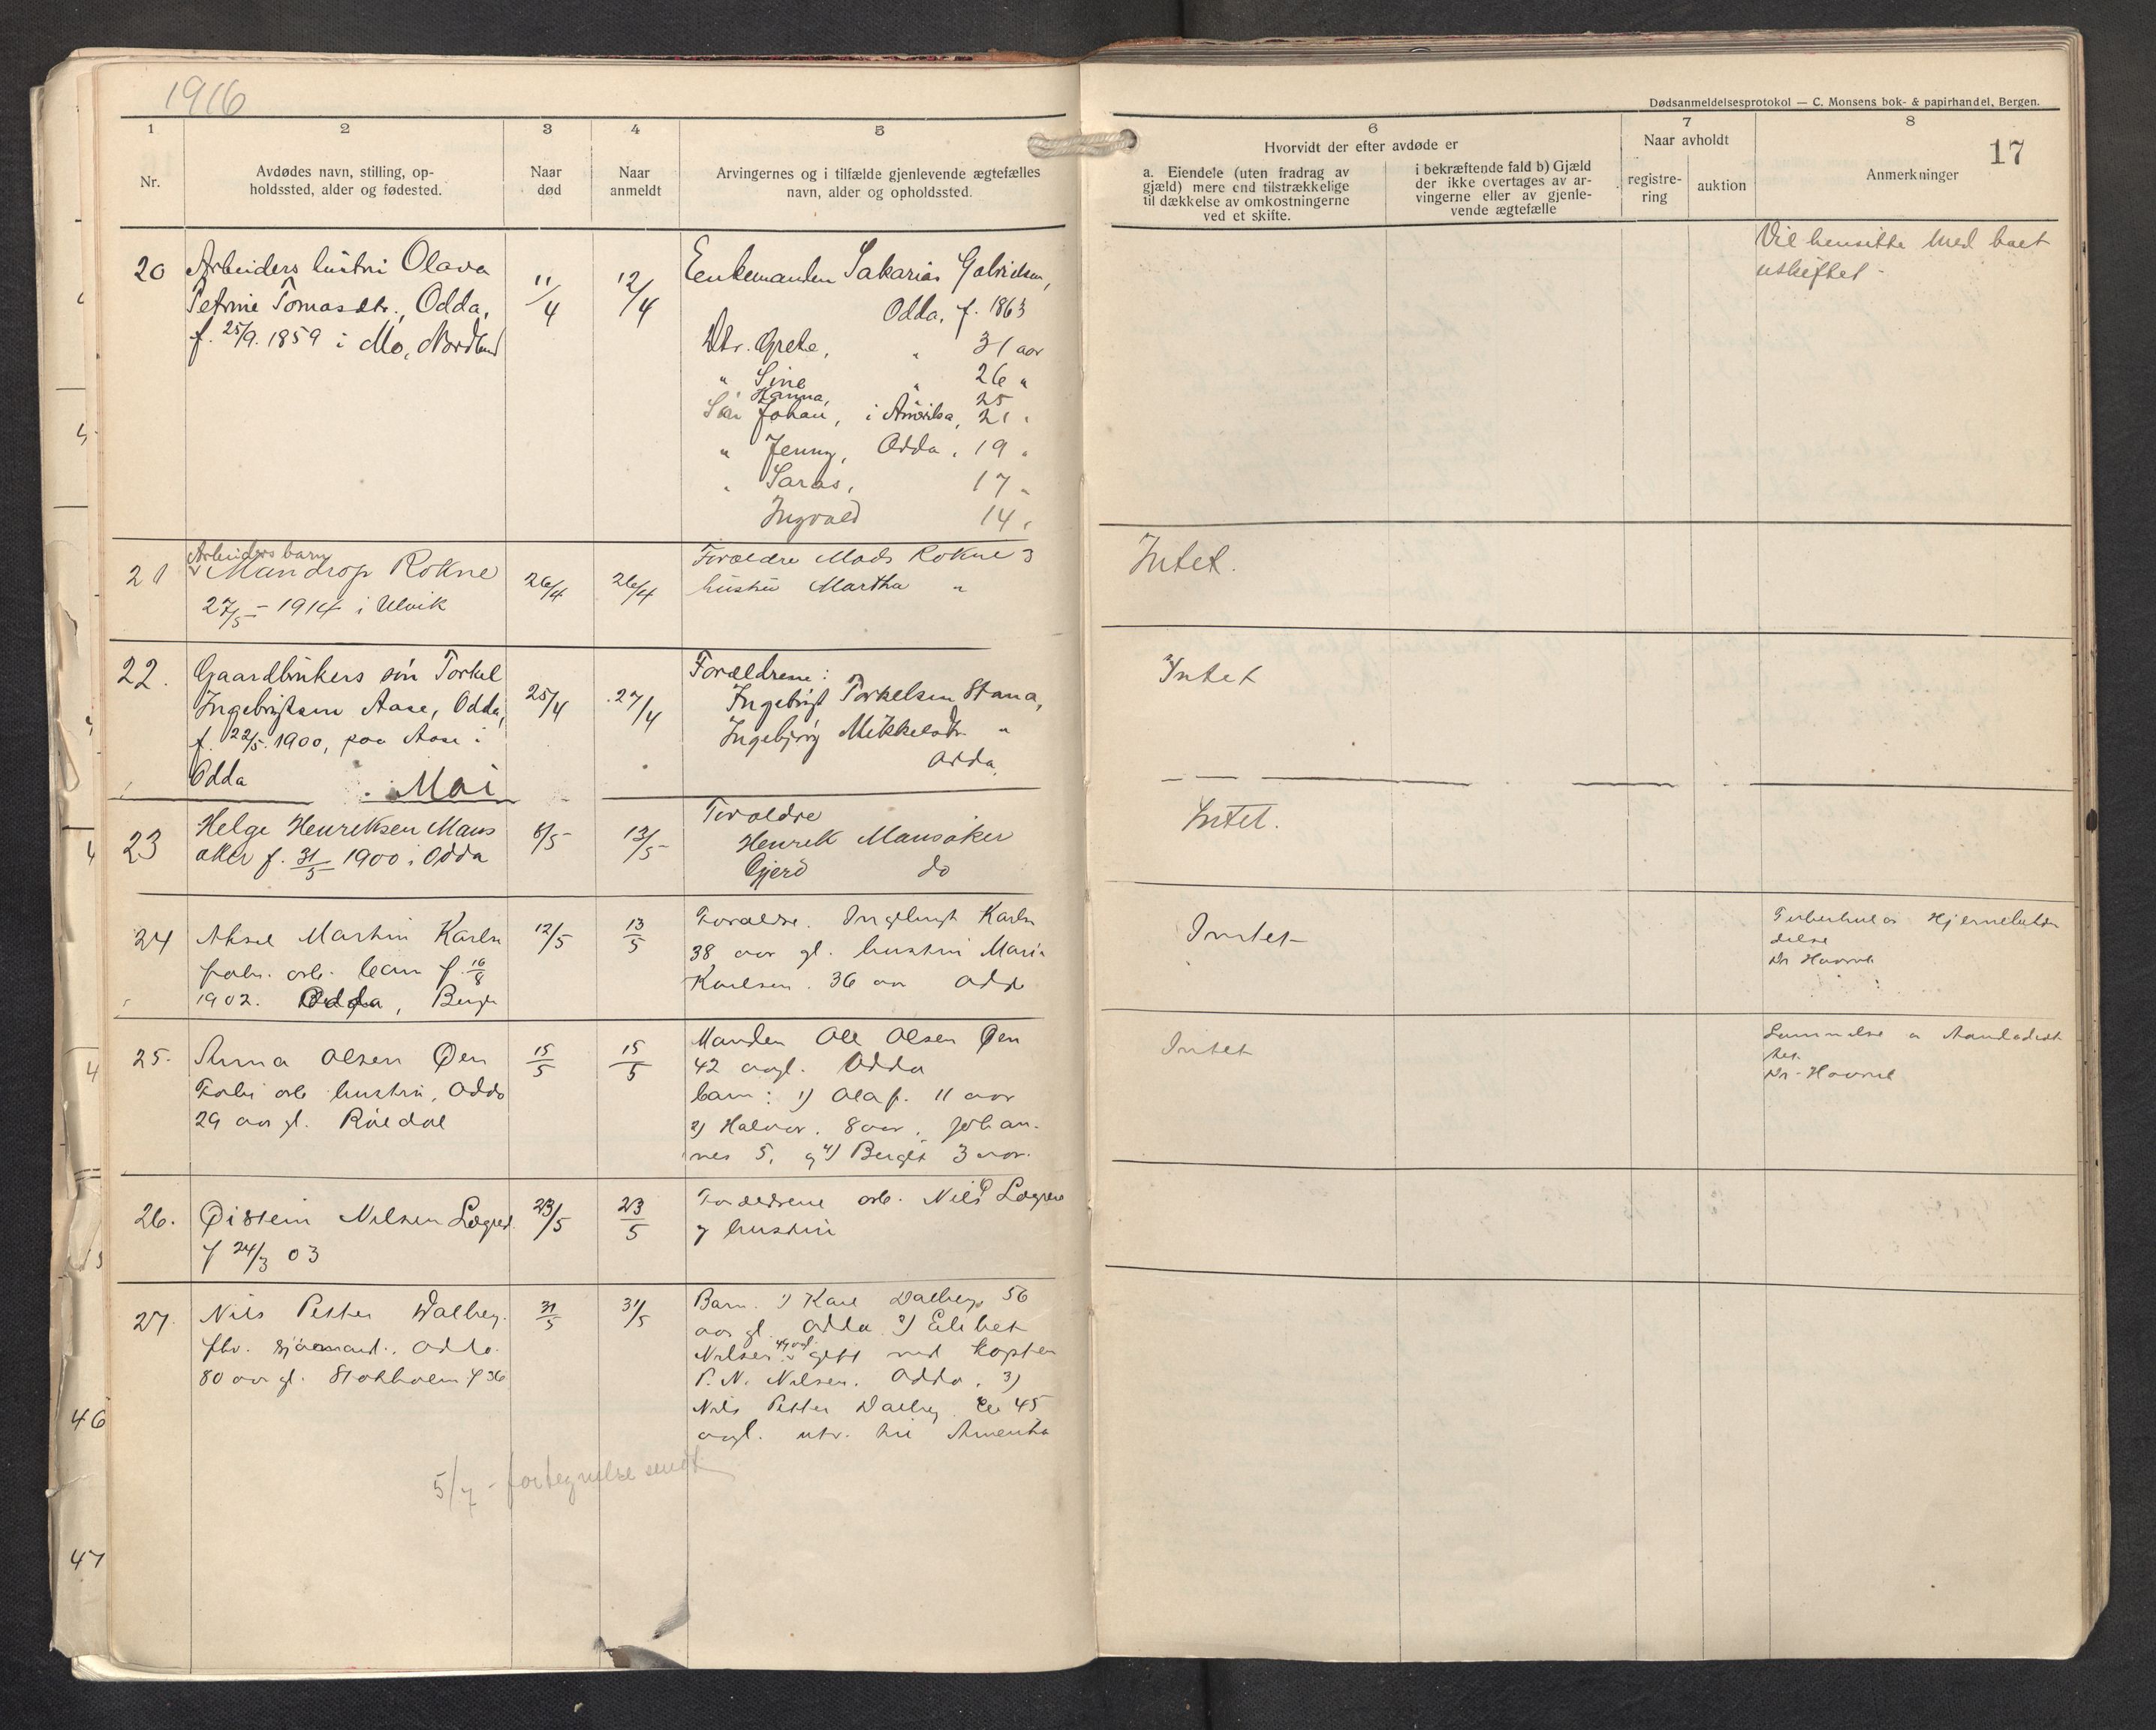 1916
Dødsanmeldelsesprotokol — C. Monsens bok- & papirhandel, Bergen.
17
1
2
3
4
5
6
7
8
Nr.
Avdødes navn, stilling, op-
holdssted, alder og fødested.
Naar
død
Naar
anmeldt
Arvingernes og i tilfælde gjenlevende ægtefælles
navn, alder og opholdssted.
Hvorvidt der efter avdøde er
a. Eiendele (uten fradrag av
gjæld) mere end tilstrækkelige
til dækkelse av omkostningerne
ved et skifte.
i bekræftende fald b) Gjæld
der ikke overtages av ar-
vingerne eller av gjenle-
vende ægtefælle
Naar avholdt
registre-
ring
auktion
Anmerkninger
20
Arbeiders hustri Olava
Petrine Tomasdtr., Odda,
f. 25/9. 1859 i Mo, Nordland
11/4
12/4
Enkemanden Sakarias Gabrielsen,
Odda, f. 1863
Dtr. Grete, " 31 aar
" Sine " 26 "
Hanna, " 25
Søn Johan, i Amerika, 21 "
" Jenny, Odda, 19 "
" Saras, 17 "
Ingvald 14 "
Vil hensitte med boet
uskiftet -
21
Arbeiders barn
Mandrop Rokne
27/5 - 1914 i Ulvik
26/4
26/4
Forældre Mads Rokne &
hustru Martha "
Intet.
22.
Gaardbrukers søn Torkel
Ingebrigtsen Aase, Odda,
f. 22/5. 1900, paa Aase i
Odda
25/4
27/4
Forældrene:
Ingebrigt Torkelsen Stana,
Ingebjørg Mikkelsdtr. "
Odda.
Intet
Mai
23
Helge Henriksen Mans
åker f. 31/5 1900 i Odda
8/5
12/5
Foroldre
Henrik Mansåker
Gjerd do
Intet.
24
Aksel Martin Karlsn
fabr. arb. barn f. 16/8
1902. Odda, Bergn
12/5
13/5
Foraldre. Ingebrigt Karlsn
38 aar gl. hustru Marie
Karlsen. 36 aar Odda
Intet
Tuberkuløs Hjernebetæn
delse
Dr Haavik
25.
Anna Olsen Øen
Fabr arb hustru, Odda
29 aar gl. Røldal
15/5
15/5
Manden Ole Olsen Øen
42 aargl. Odda
barn: 1) Olaf. 11 aar
2) Halvor. 8 aar. Johan-
nes 5, og 4) Bergit 3 aar.
Intet
Lammelse a Aandedræt
tet.
Dr. Haavik
26.
Øistein Nilsen Lægreid
f 24/3 03
23/5
23/5
Foreldrene arb. Nils O Lægreid
og hustru
27.
Nils Petter Dalberg.
fhv. sjømand. Odda.
80 aar gl. Stokholm f 36
31/5
31/5
Barn. 1) Karl Dalberg 56
aar gl. Odda 2) Elibet
Nilsen 49 aargl. gift med Kaptein
P. N. Nilsen. Odda. 3)
Nils Petter Dalberg 45
aargl. utv. til Amerika
5/7 - fortegnelse sendt
46
47